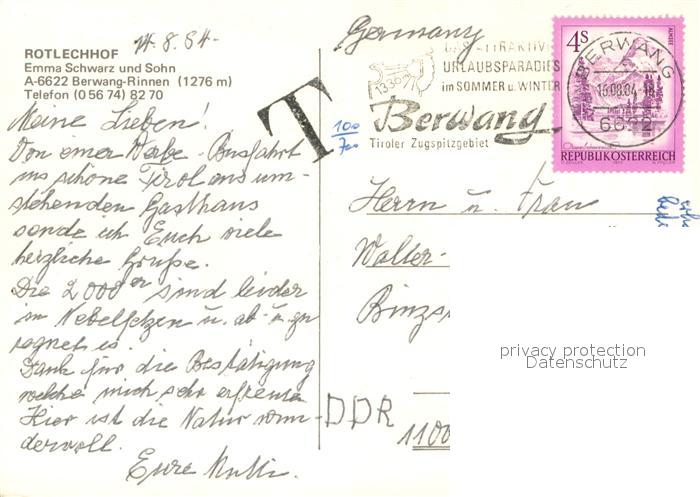 14.8.84-
ROTLECHHOF
Emma Schwarz und Sohn
A-6622 Berwang-Rinnen (1276 m)
Telefon (0 56 74) 82 70
Meine Lieben!
Von einer Werbe-Busfahrt
ins schöne Tirol aus um-
stehenden Gasthaus
sende ich Euch viele
herzliche Grüße.
Die 2000er sind leider
in Nebelfetzen u. ab u. zu
regnet es.
Dank für die Bestätigung
welche mich sehr erfreute
Hier ist die Natur wun-
dervoll.
Eure Mutti.
Germany
T
100
700
DAS ATTRAKTIVE
URLAUBSPARADIES
im SOMMER u. WINTER
1336m
Berwang
Tiroler Zugspitzgebiet
4S
BERWANG
15.08.84-18
6622
REPUBLIK ÖSTERREICH
Herrn u. Frau
Walter-
Binzs
privacy protection
Datenschutz
DDR
1100